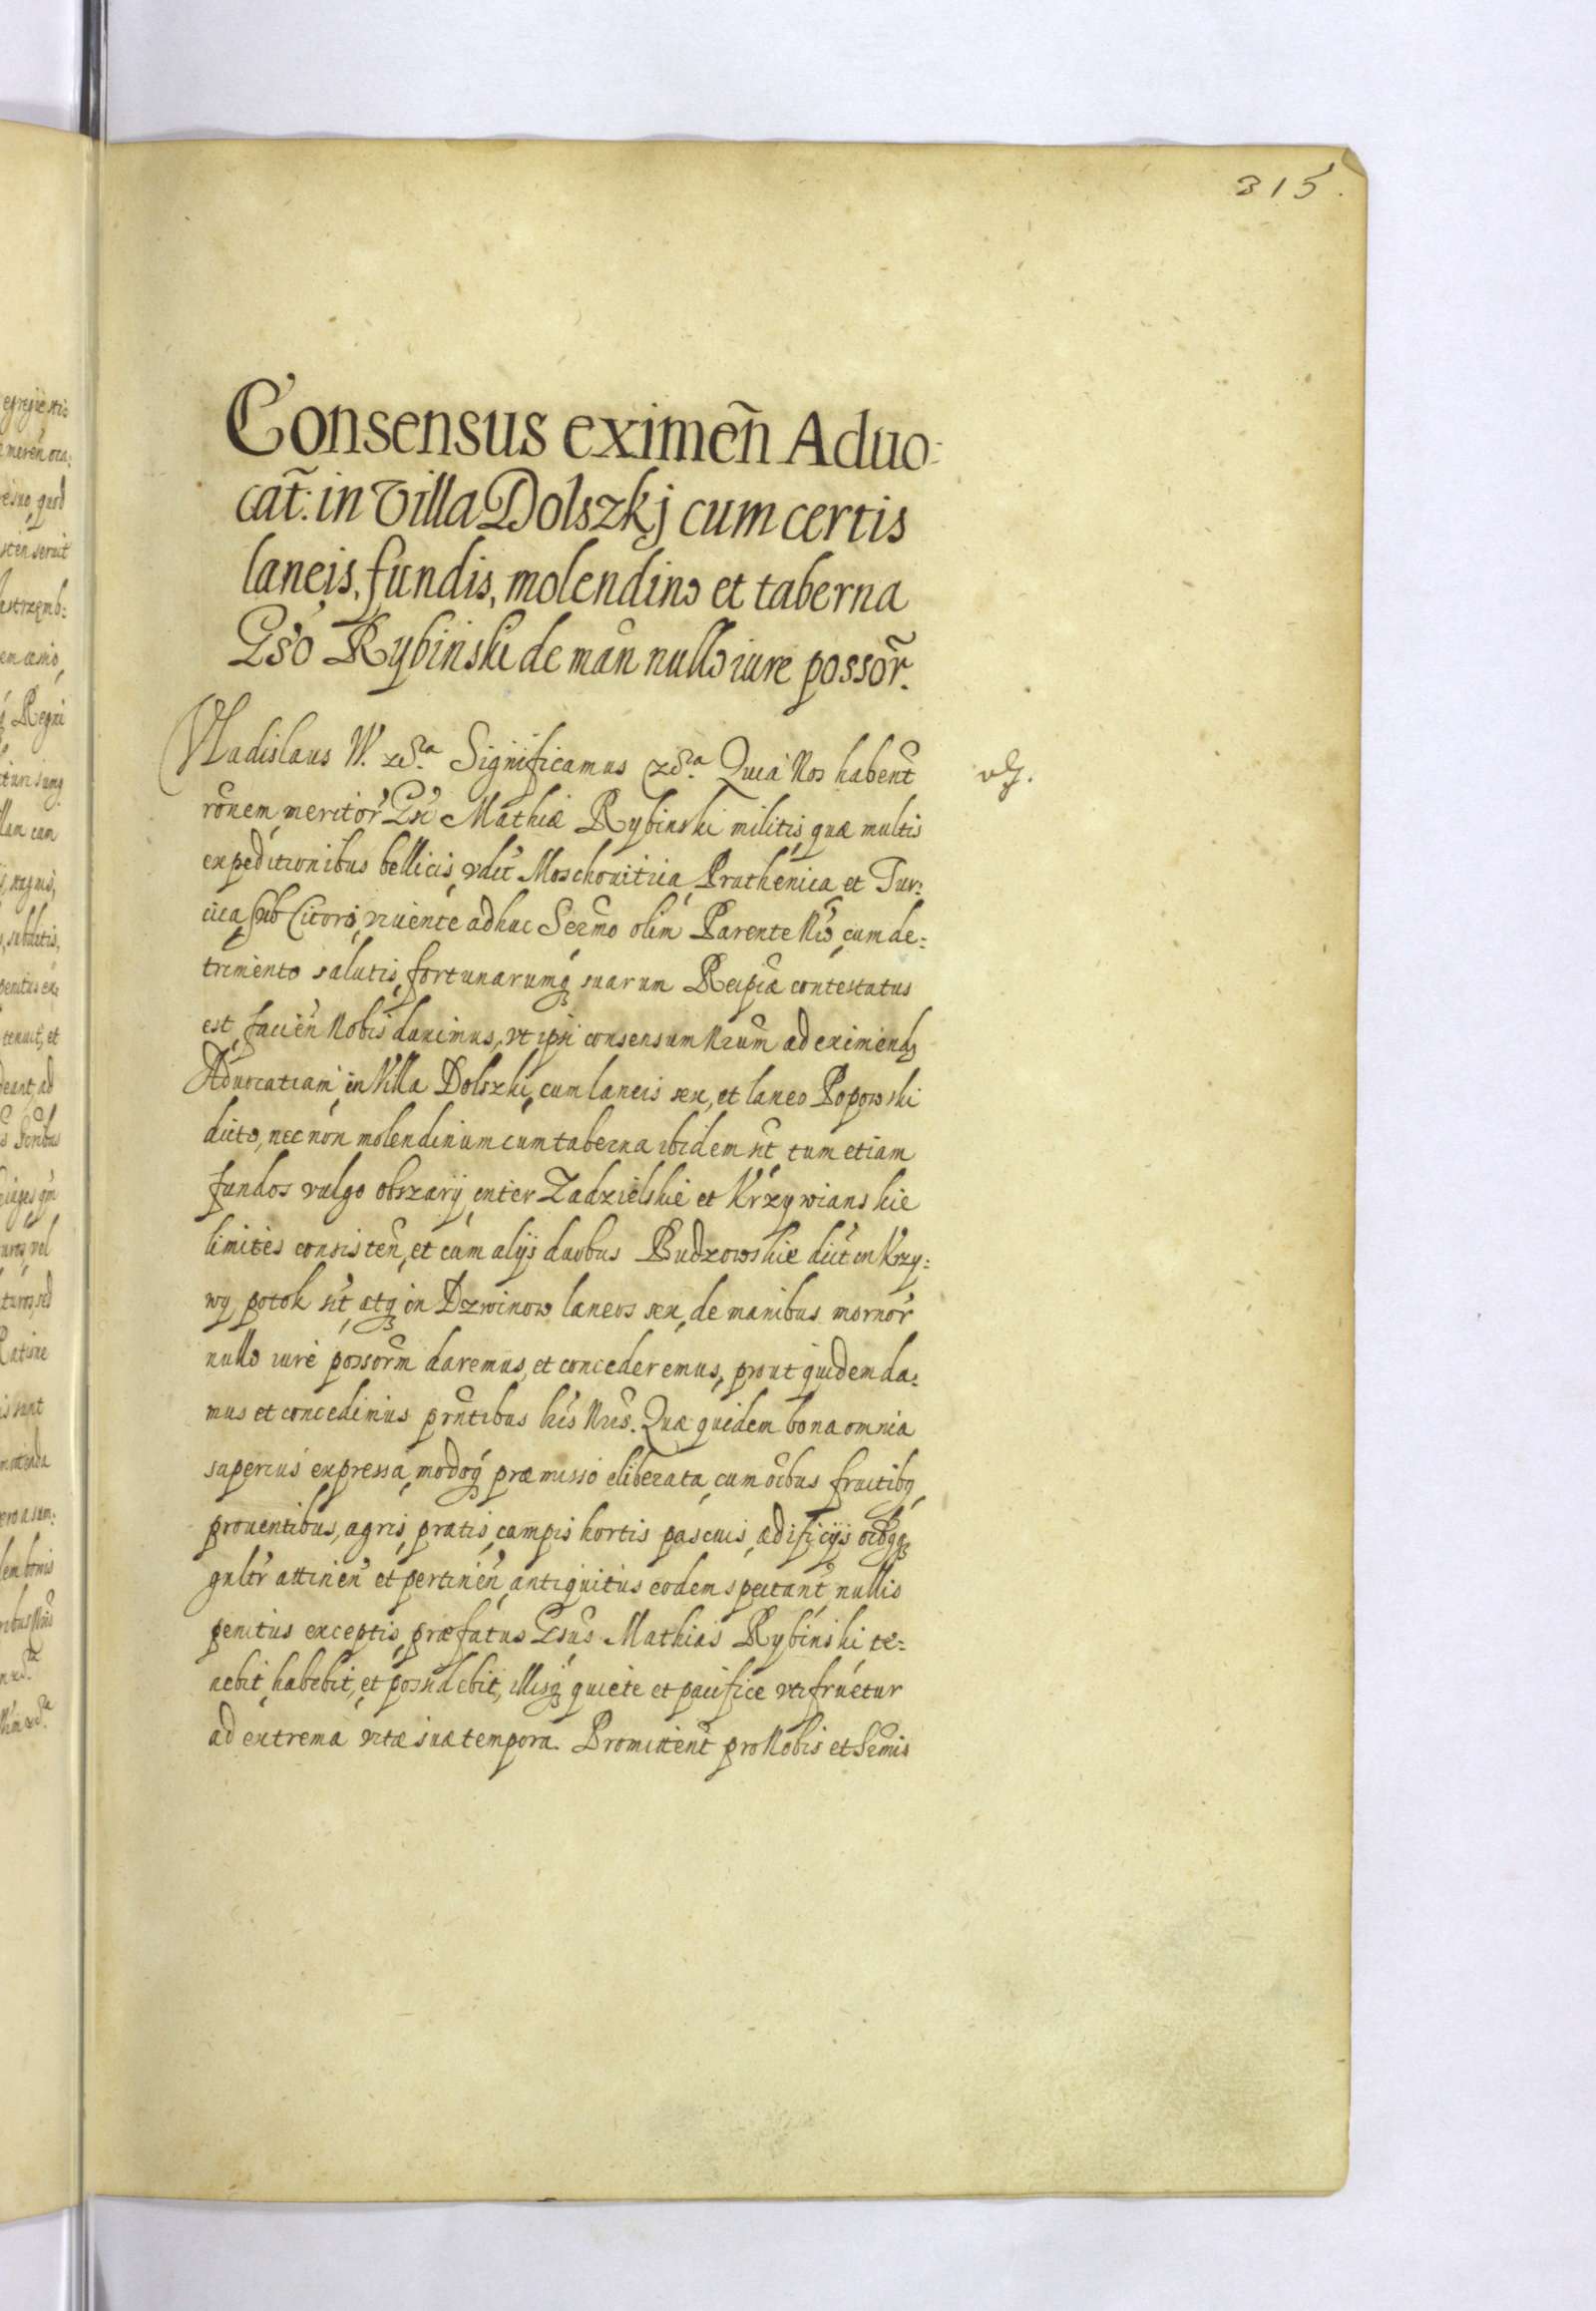 315.
Consensus eximeñ Aduo:
cat̃: in Villa Dolszkj cum certis
laneis, fundis, molendino et taberna
Gso Rybinski de mañ nullo iure possor̃.
Vladislaus IV. Significamus Quia Nos habent̃
rõnem meritor̃ Gsi Mathiæ Rybinski militis, quæ multis
expeditionibus bellicis, vdct Moschouitica, Pruthenica et Tur:
cica sub Cicora, viuente adhuc Sermo olim Parente Nro, cum de:
trimento salutis, fortunarumq suarum Reipcæ contestatus
est, facien Nobis duximus, vt ipsi consensum Nrum ad eximendã
Aduocatiam in Villa Dolszki, cum laneis sex, et laneo Popowski
dicto, nec non molendinum cum taberna ibidem sit̃ tum etiam
fundos vulgo obszary inter Zadzielskie et Krzywianskie
limites consisteñ, et cum alijs duobus Budzowskie dict̃ in Krzy:
wy potok sit̃, atq in Dzwinow laneos sex, de manibus mornor̃
nullo iure possorm̃ daremus, et concederemus, prout quidem da:
mus et concedimus prñtibus his Nris. Quæ quidem bona omnia
superius expressa, modoq præmisso eliberata, cum oĩbus fructibq,
prouentibus, agris, pratis, campis hortis pascuis, ædificijs
gñltr̃ attineñ et pertineñ, antiquitus eodem spectant̃, nullis
penitus exceptis, præfatus Gsus Mathias Rybinski te:
nebit, habebit, et possidebit, illisq quiete et pacifice vti fruetur
ad extrema vitæ suæ tempora. Promitten̄t pro Nobis et Sermis